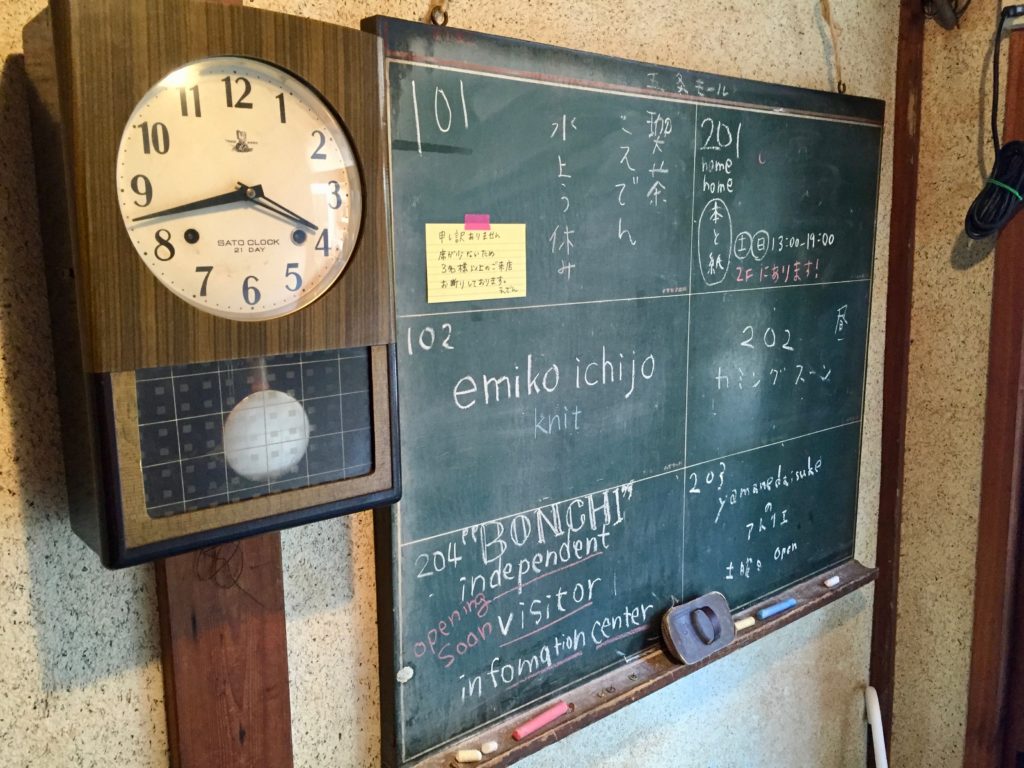 12
1
2
3
4
5
6
7
8
9
10
11
SATO CLOCK
21 DAY
五条モール
101
珈琲茶
こえでん
水よう休み
申し訳ありません
席が少ないため
3名様以上のご来店
お断りしております。
201
home
home
本と紙
土 日 13:00-19:00
2Fにあります!
102
emiko ichijo
knit
202
昼
カミングスーン
!
204 "BONCHI"
independent
opening
soon
visitor
infomation center
203
yamanedaisuke
の
アトリエ
土曜日 open